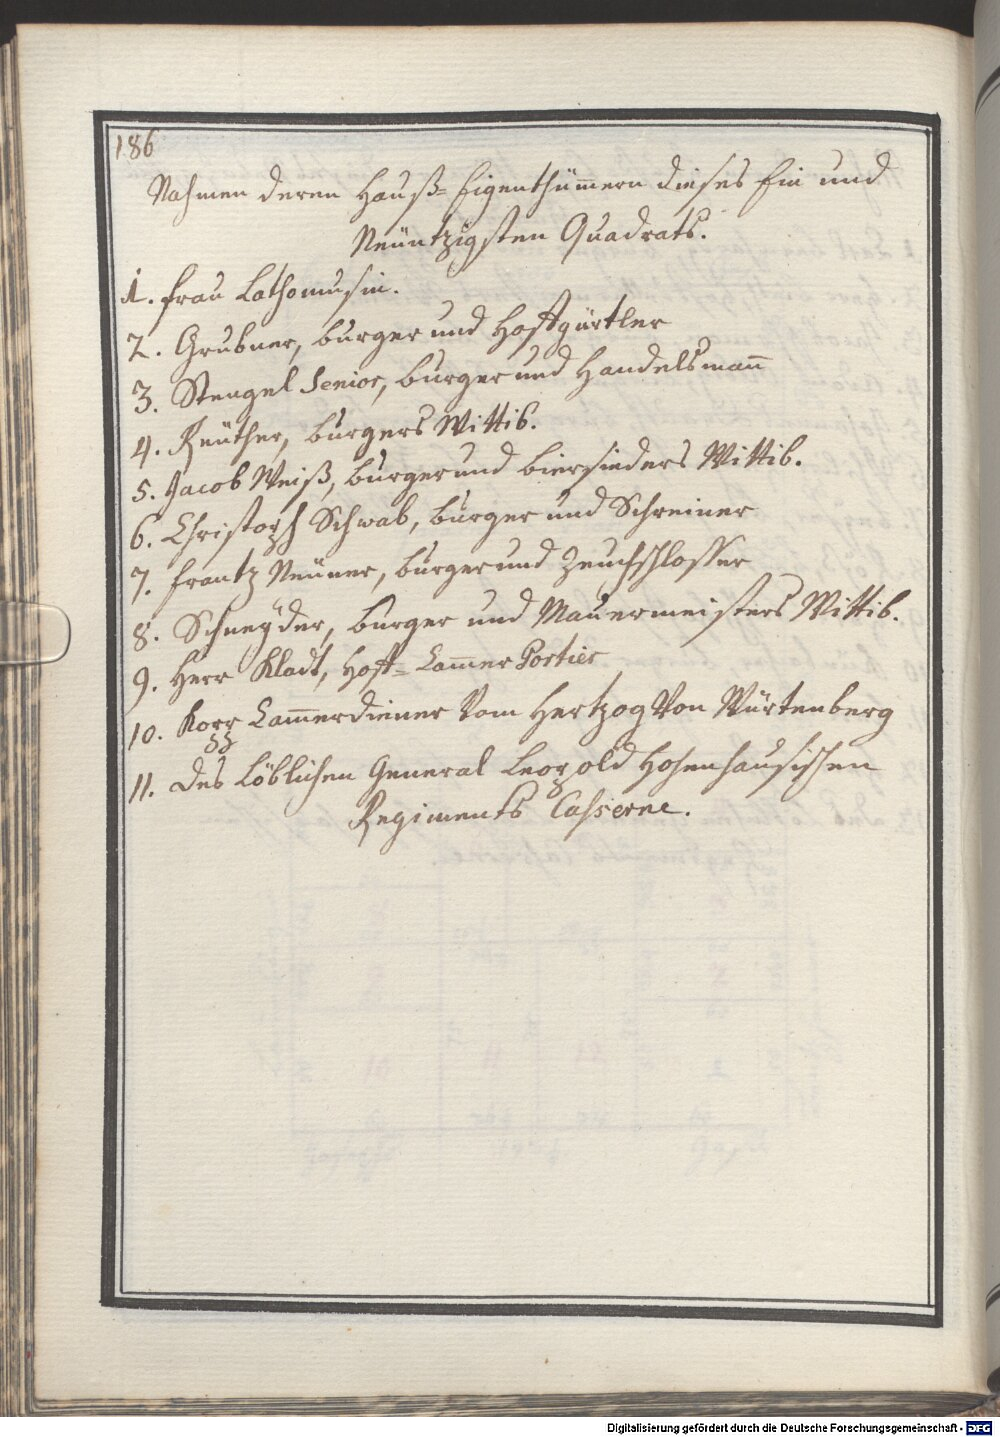 186
Nahmen deren Hauß=Eigenthümern dieses Ein und
Neüntzigsten Quadrats.
1. Frau Lathomusin.
2. Grubner, burger und Hoffgürtler
3. Stengel Senior, burger und Handelsmañ
4. Reüther, burgers Wittib.
5. Jacob Weiß, burger und biersieders Wittib.
6. Christoph Schwab, burger und Schreiner
7. Frantz Neüner, burger und Zeuchschlosser
8. Schneÿder, burger und Mauermeisters Wittib.
9. Herr Kladt, Hoff=Cam̃er Portier
10. Korr Cam̃erdiener Vom Hertzog Von Würtenberg
11. Des Löblichen General Leopold Hohenhausischen
Regiments Casserne.
Digitalisierung gefördert durch die Deutsche Forschungsgemeinschaft - DFG